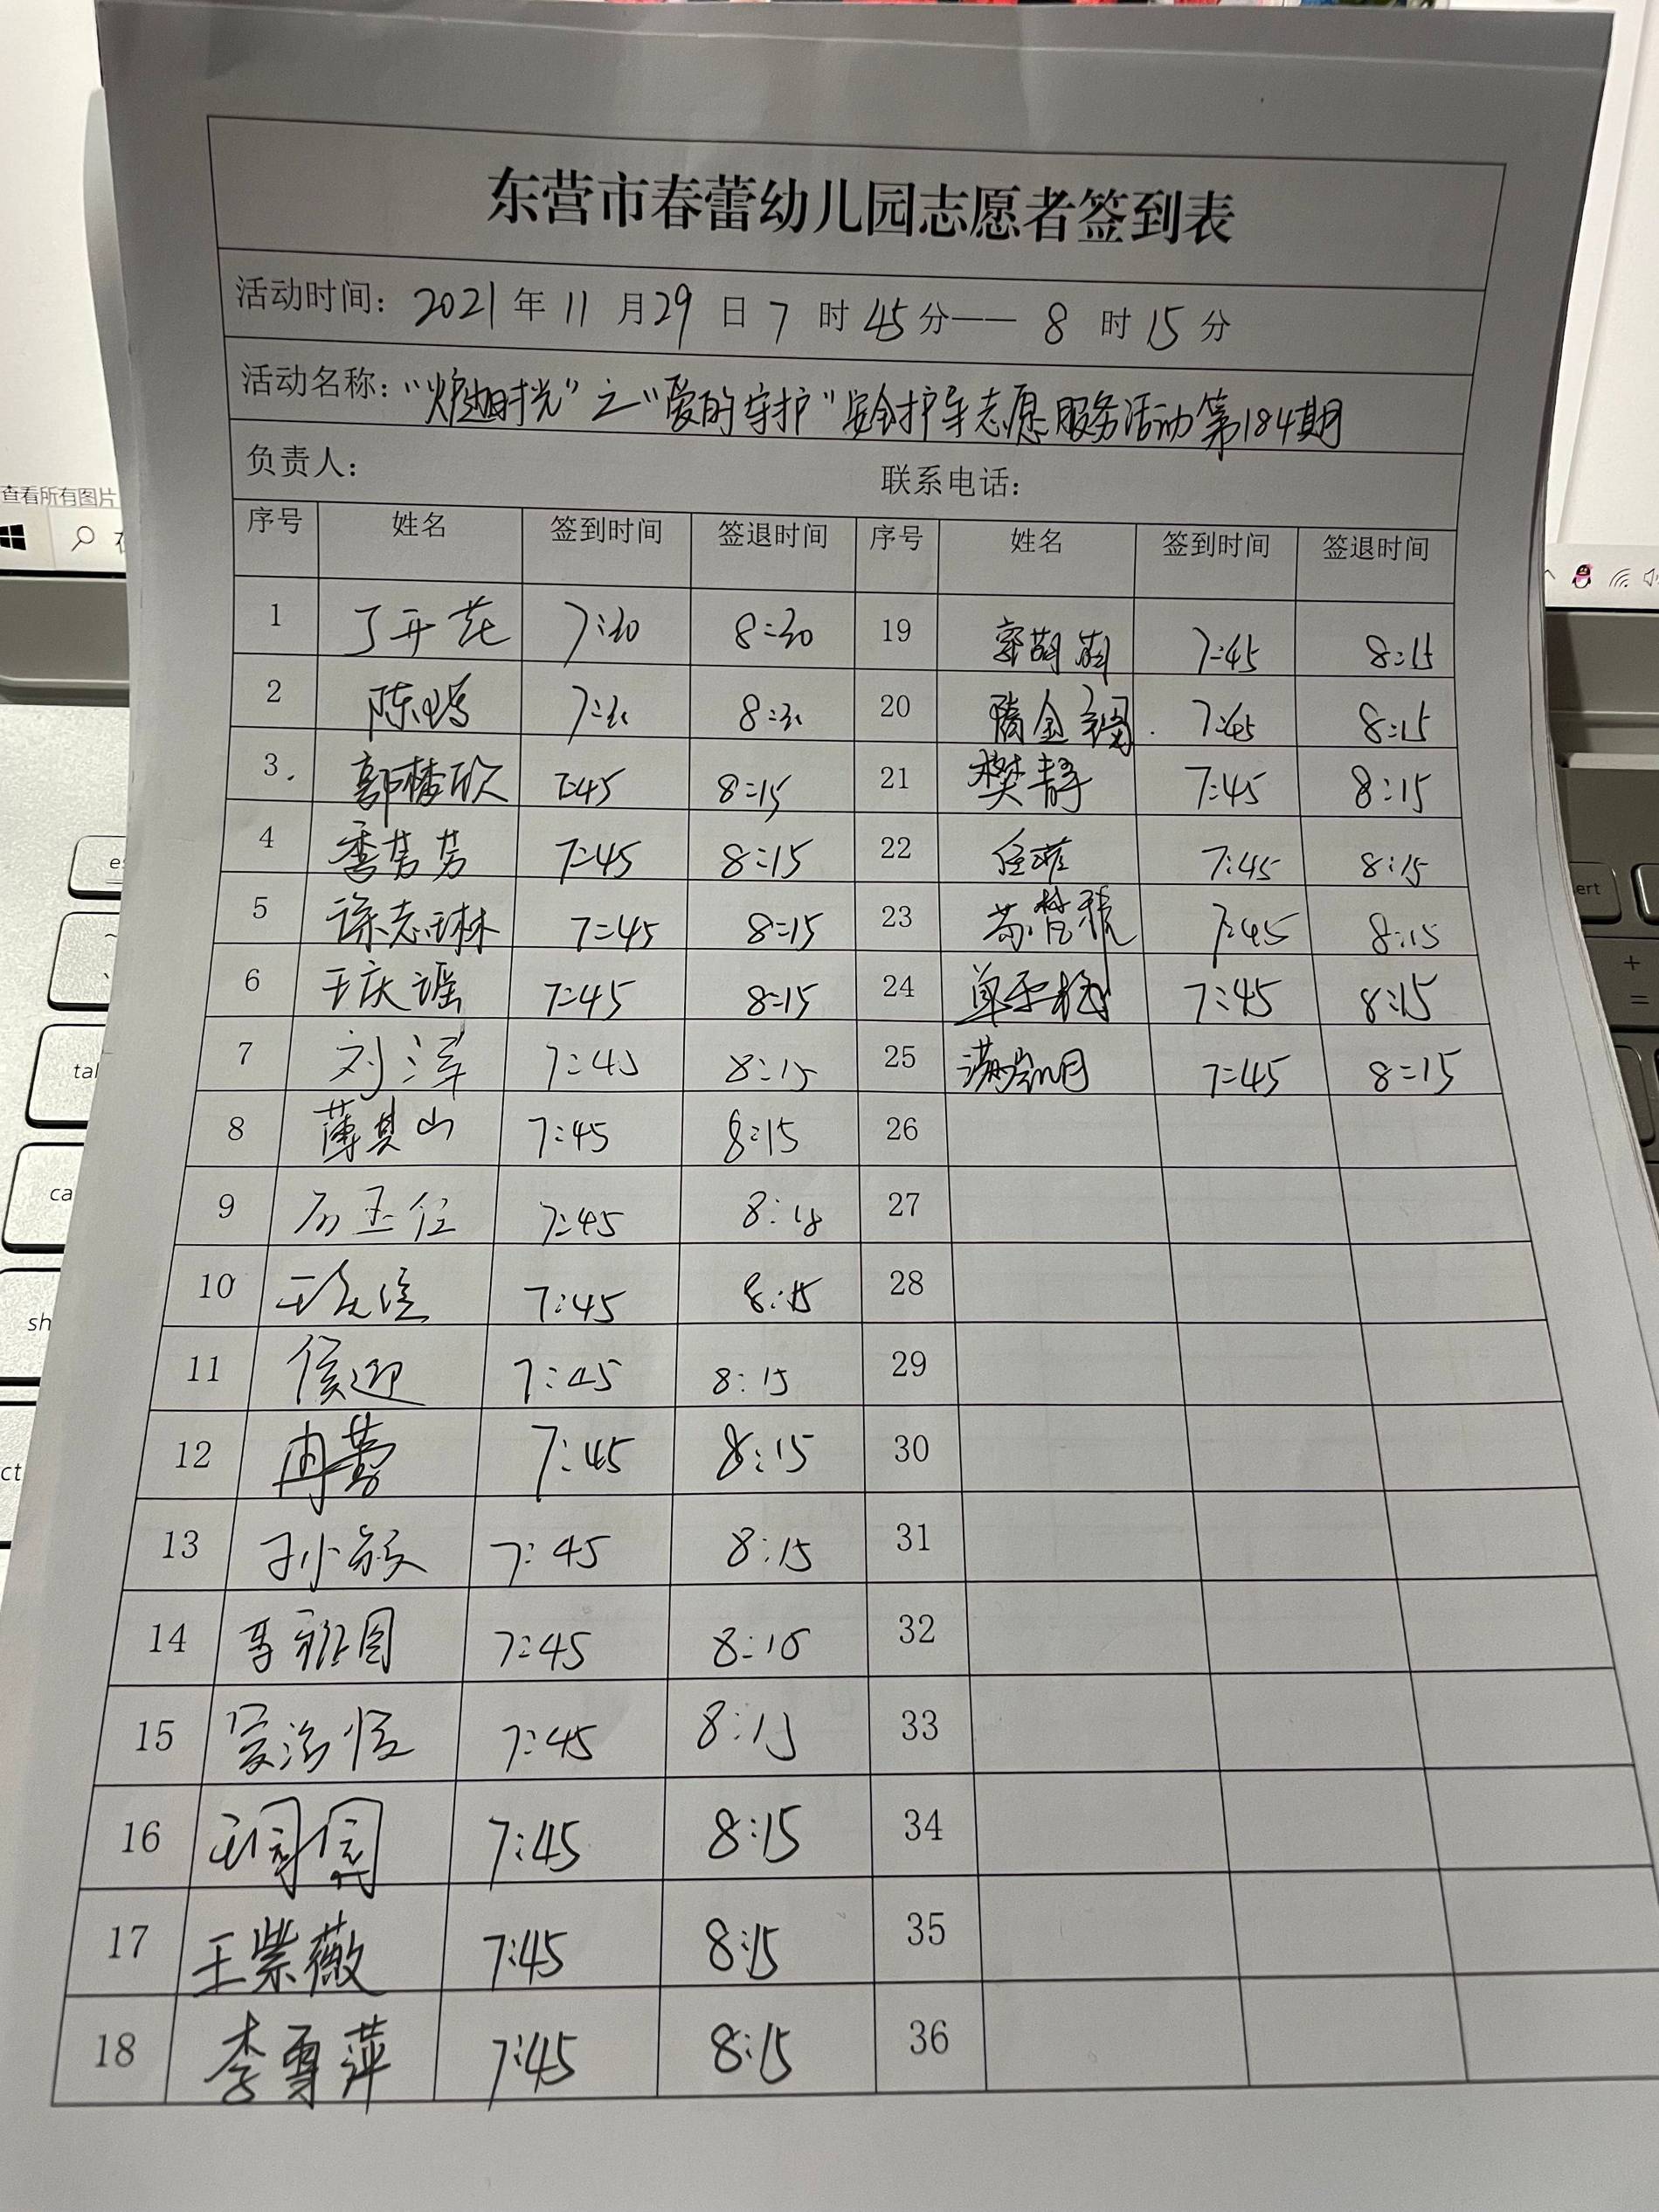 东营市春蕾幼儿园志愿者签到表
活动时间：2021年11月29日7时45分——8时15分
活动名称：“炉旭时光”之“爱的守护”安全护导志愿服务活动第184期
负责人： 联系电话：
序号 姓名 签到时间 签退时间 序号 姓名 签到时间 签退时间
1 丁开花 7:30 8:30 19 郭萌萌 7:45 8:15
2 陈鸣 7:30 8:30 20 隋金福 7:45 8:15
3 郭梦欣 7:45 8:15 21 樊静 7:45 8:15
4 季芳芳 7:45 8:15 22 7:45 8:15
5 徐志琳 7:45 8:15 23 7:45 8:15
6 王庆谣 7:45 8:15 24 7:45 8:15
7 刘泽 7:45 8:15 25 7:45 8:15
8 薄其山 7:45 8:15 26
9 7:45 8:18 27
10 7:45 8:15 28
11 侯迎 7:45 8:15 29
12 冉蕾 7:45 8:15 30
13 孙敏 7:45 8:15 31
14 李雅图 7:45 8:15 32
15 7:45 8:15 33
16 王园园 7:45 8:15 34
17 王紫薇 7:45 8:15 35
18 李尊萍 7:45 8:15 36
查看所有图片